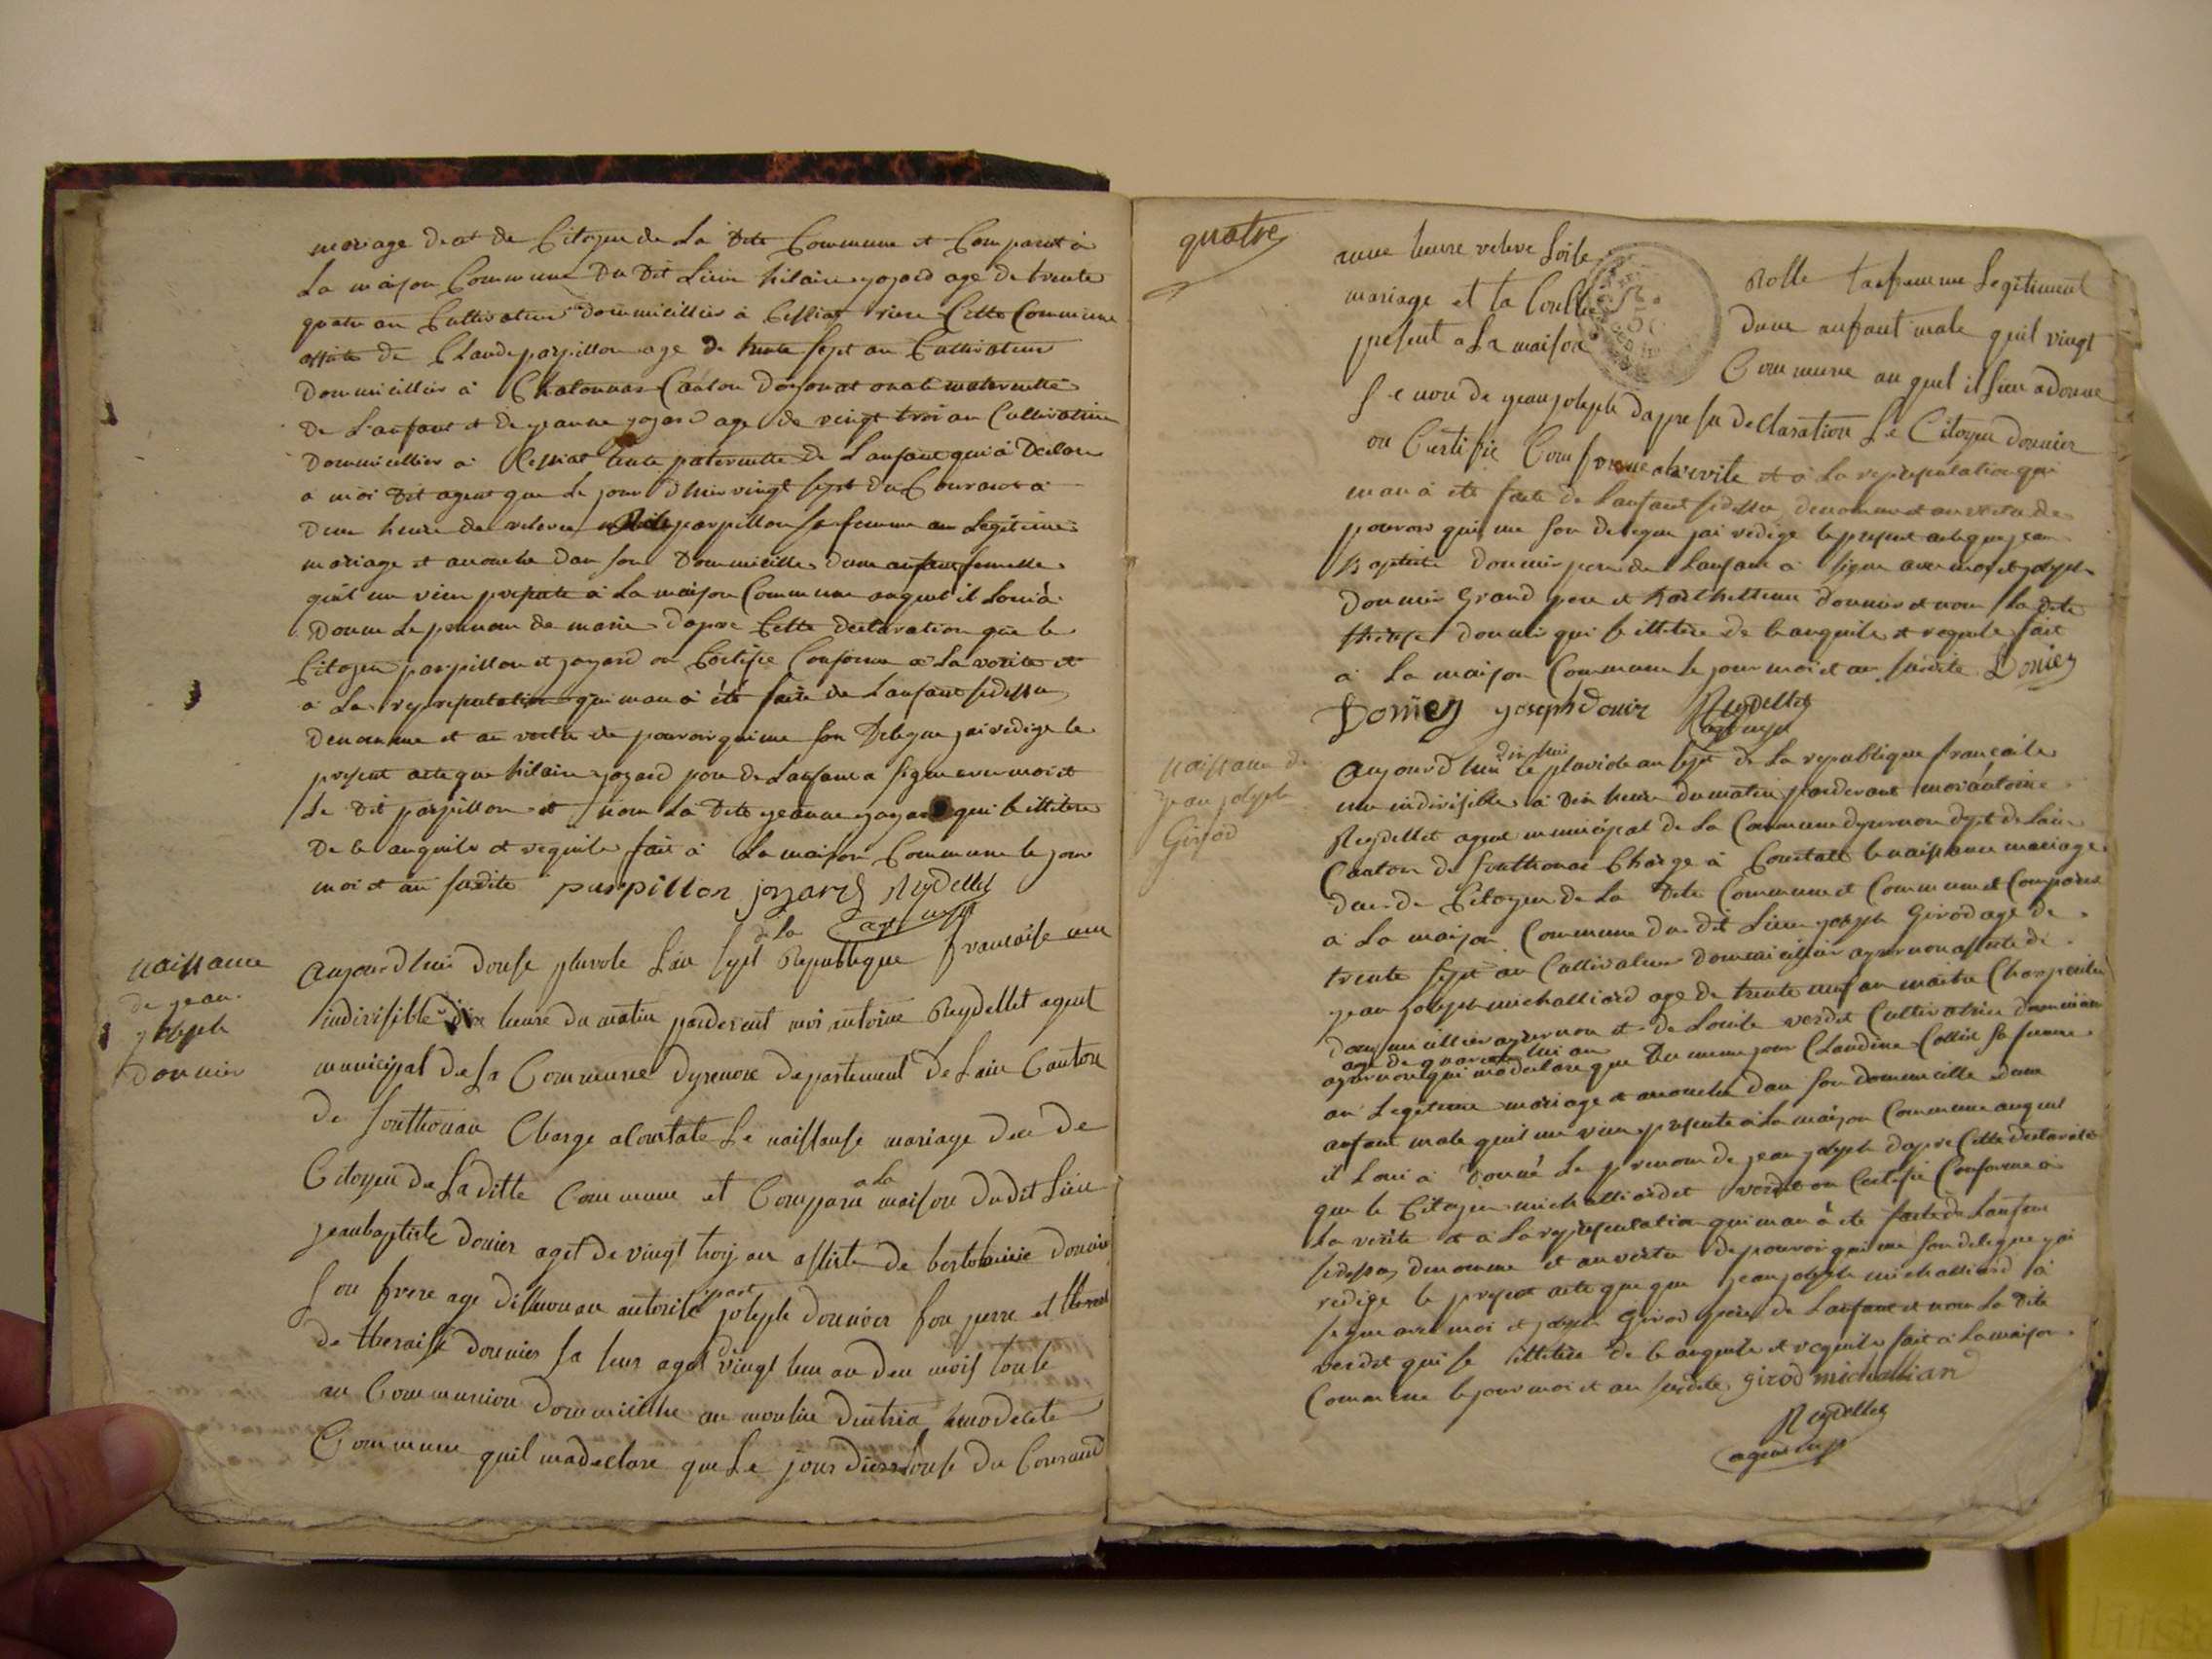 mariage deat de Citoyen de La dite Commune et Comparut à
La maison Commune Du Dit Lieu hilaire joyard age de trente
quatre an Cultivateur domicillier à Cessiat riere Cette Commune
assiste de Claude parpillon age de trente sept an Cultivateur
Dommicillier à Chatonnas Canton
De L'anfant et de jeanne joyard age de vingt troi an Cultivatrice
Dommicillier a Cessiat tente paternelle de Lanfant qui à Declare
a moi dit agent que Le jour D'hier vingt sept du Courant à
Deux heure de releve parpillon sa femme an Legitime
mariage et acouche dan son Dommicille dune anfant femelle
quil me vien presente à La maison Commune auquel il Loui à
Donne Le prenom de marie dapre Cette declaration que le
Citoyen parpillon et joyard on Certifie Conforme a La verite et
a La representation qui man à été faite de Lanfant sidessu
Denomme et an vertu de pouvoir qui me son Delegue jai redige le
present acte que hilaire joyard pere de Lanfant a signe avec moi et
Le Dit parpillon et non La Dite jeanne joyard qui se illitere
De ce anquite et requite fait à La maison Commune le jour
moi et an sudite parpillon joyard Reydellet
agt
naissance
de jean
joseph
donnier
Aujourdhui douse pluvole Lan sept de La Republique francaise une
indivisible dix heure du matin pardevent moi antoine Reydellet agent
municipal de La Commune dysernore departement de Lain Canton
de Sonthonan Charge a Constate Le naissanse mariage dee de
Citoyen de La ditte Commune et Comparu a La maison dudit Lieu
jeanbaptiste donier aget de vingt troij an assiste de
Son frere age an autorise part joseph donnier son perre et
de theraise donnier sa seur aget vingt hun an deu mois toute
an Communion dommicillie au moulin
Commune quil madeclare que Le jour douse du Courand
quatre
aune heure releve
mariage et la
present a La maison
Le nom de jeanjoseph dapre sa declaration Le Citoyen donnier
on Certifie Comforme alaverite et à La representation qui
man à ete faite de Lanfant sidessu denomme et an vertu de
pouvoir qui me son delegue jai redige le present acte que jean
Baptiste donnier pere de Lanfant a signe avec moi et joseph
Donnier Grand pere et donnier et non La dite
therese donnier qui se illitere de ce anquite et requite fait
à La maison Commune le jour moi et an sudite Donier
Donier joseph Donier Reydellet
agt mpl
Rolle sa femme Legitiment
dune anfant male quil vingt
Commune au quel il Lui a donne
naissance de
jean joseph
Girod
Aujourdhui dix hui le pluviole an sept de La republique francaise
une indivisible à dix heure du matin pardevant moi antoine
Reydellet agent municipal de La Commune dysernore dept de Lain
Canton de Sonthonas Charge à Constate le naissance mariage
dee de Citoyen de La dite Commune et Commune et Comparu
à La maison Commune du dit Lieu joseph Girod age de
trente sept an Cultivateur dommicillier aysernon assiste de
jean joseph michalliard age de trente neuf an maitre Charpentier
dommicillier aysernon et de Louise verdet Cultivatrice
age de quarante hui an
aysernon qui madeclare que Du meme jour Claudine Collet sa femme
an Legitime mariage et acouche dan son dommicille dune
anfant male quil me vien presente à La maison Commune auquel
il Loui à donné Le prenom de jean joseph dapre Cette declaration
que le Citoyen michalliard et verdet on Certifie Conforme à
La verite et a La representation qui man à ete faite de Lanfant
sidessu denomme et an vertu de pouvoir qui me son delegue jai
redige le present acte que que jean joseph michalliard à
signe avec moi et joseph Girod pere de Lanfant et non La dite
verdet qui se illitere de ce anquite et requite fait à La maison
Commune le jour moi et an sudite girod michallian
Reydellet
agent mpl